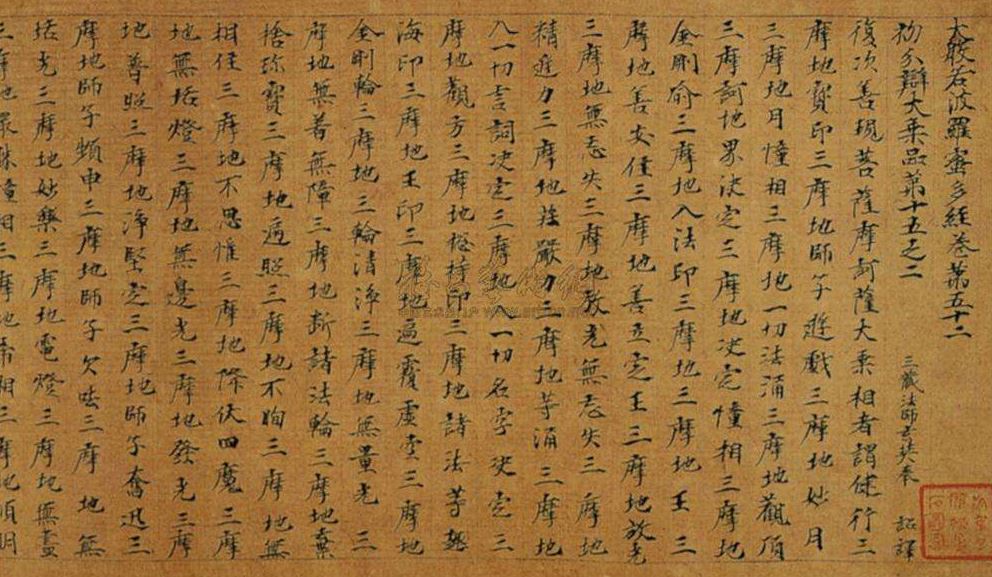 大般若波羅蜜多經卷第五十二
初分辯大乘品第十五之二
三藏法師玄奘奉 詔譯
復次善現菩薩摩訶薩大乘相者謂健行三
摩地寶印三摩地師子遊戲三摩地妙月
三摩地月憧相三摩地一切法涌三摩地觀頂
三摩訶地界决定三摩地决定憧相三摩地
金剛俞三摩地入法印三摩地三摩地王三
摩地善安住三摩地善立定王三摩地放光
三摩地無忘失三摩地放光無忘失三摩地
精進力三摩地莊嚴力三摩地等涌三摩地
入一切言詞决定三摩地一切名字决定三
摩地觀方三摩地總持印三摩地諸法等趣
海印三摩地王印三摩地遍覆虛空三摩地
金剛輪三摩地三輪清淨三摩地無量光三
摩地無著無障三摩地斷諸法輪三摩地棄
捨珎寶三摩地遍照三摩地不眴三摩地無
相住三摩地不思惟三摩地降伏四魔三摩
地無垢燈三摩地無邊光三摩地發光三摩
地普照三摩地淨堅定三摩地師子奮迅三
摩地師子頻申三摩地師子欠呿三摩地無
垢光三摩地妙樂三摩地電燈三摩地無盡
三摩地最勝憧相三摩地帝相三摩地順明